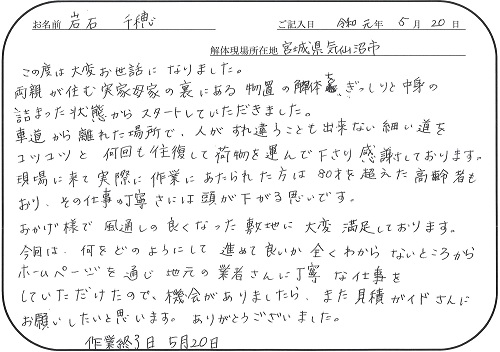 お名前 岩石 千穂 ご記入日 令和元年 5月 20日
解体現場所在地 宮城県気仙沼市
この度は大変お世話になりました。
両親が住む実家母家の裏にある物置の解体を、ぎっしりと中身の
詰まった状態からスタートしていただきました。
車道から離れた場所で、人がすれ違うことも出来ない細い道を
コツコツと何回も往復して荷物を運んで下さり感謝しております。
現場に来て実際に作業にあたられた方は80才を超えた高齢者も
おり、その仕事の丁寧さには頭が下がる思いです。
おかげ様で風通しの良くなった敷地に大変満足しております。
今回は、何をどのようにして進めて良いか全くわからないところから
ホームページを通じ地元の業者さんに丁寧な仕事を
していただけたので、機会がありましたら、また見積ガイドさんに
お願いしたいと思います。ありがとうございました。
作業終了日 5月20日